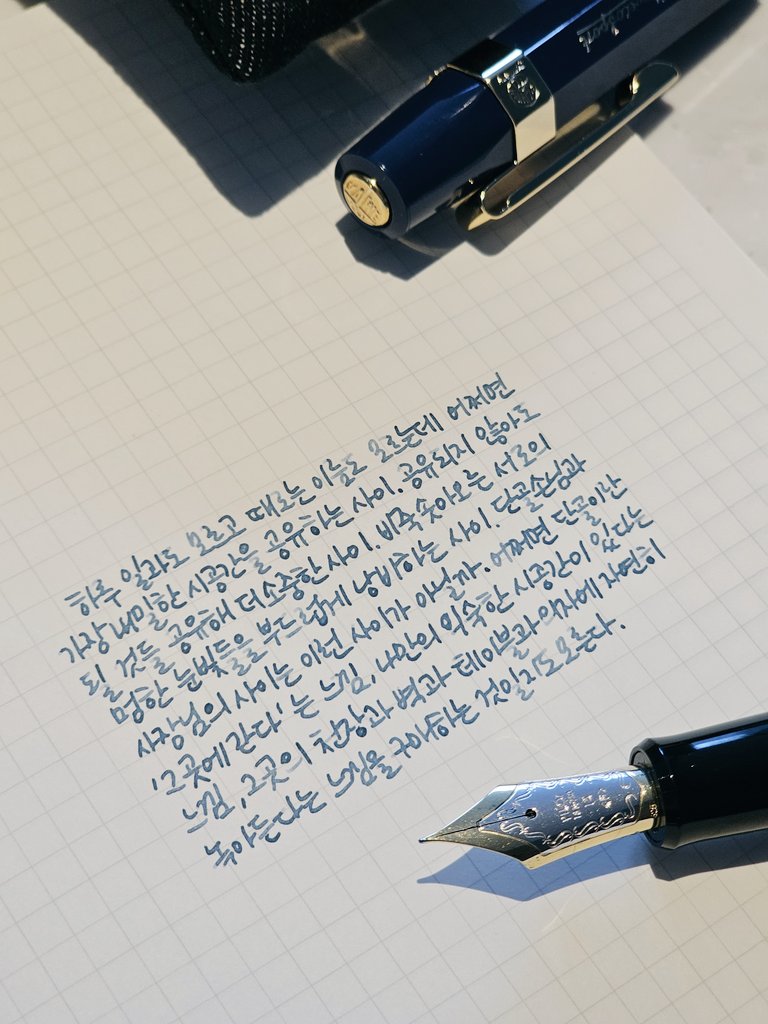 하루 일과도 모르고 때로는 이름도 모르는데 어쩌면
가장 내밀한 시공간을 공유하는 사이. 공유되지 않아도
될 것들을 공유해 더 소중한 사이. 비죽 솟아오르는 서로의
멍한 눈빛들을 부드럽게 낭비하는 사이. 단골손님과
사장님의 사이는 이런 사이가 아닐까. 어쩌면 단골이란
'그곳에 간다'는 느낌, 나만의 익숙한 시공간이 있다는
느낌, 그곳의 천장과 벽과 테이블과 의자에 자연히
녹아든다는 느낌을 구매하는 것일지도 모른다.